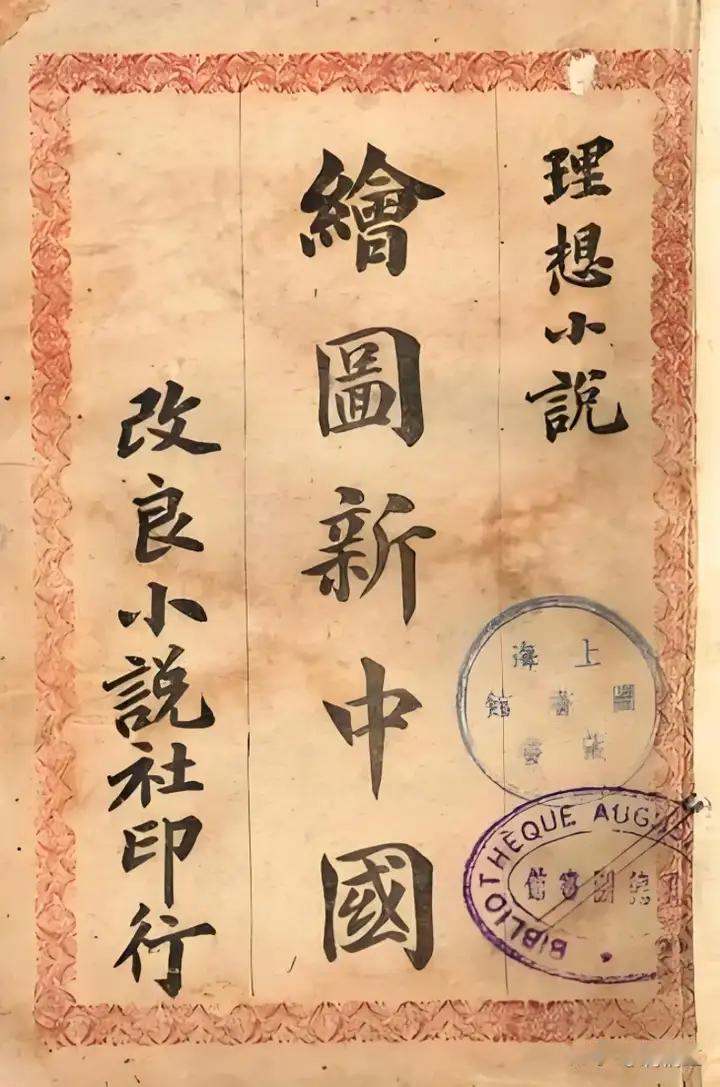 理想小説
繪圖新中國
改良小説社印行
上海
圖書館
藏書
BIBLIOTHÈQUE AUG